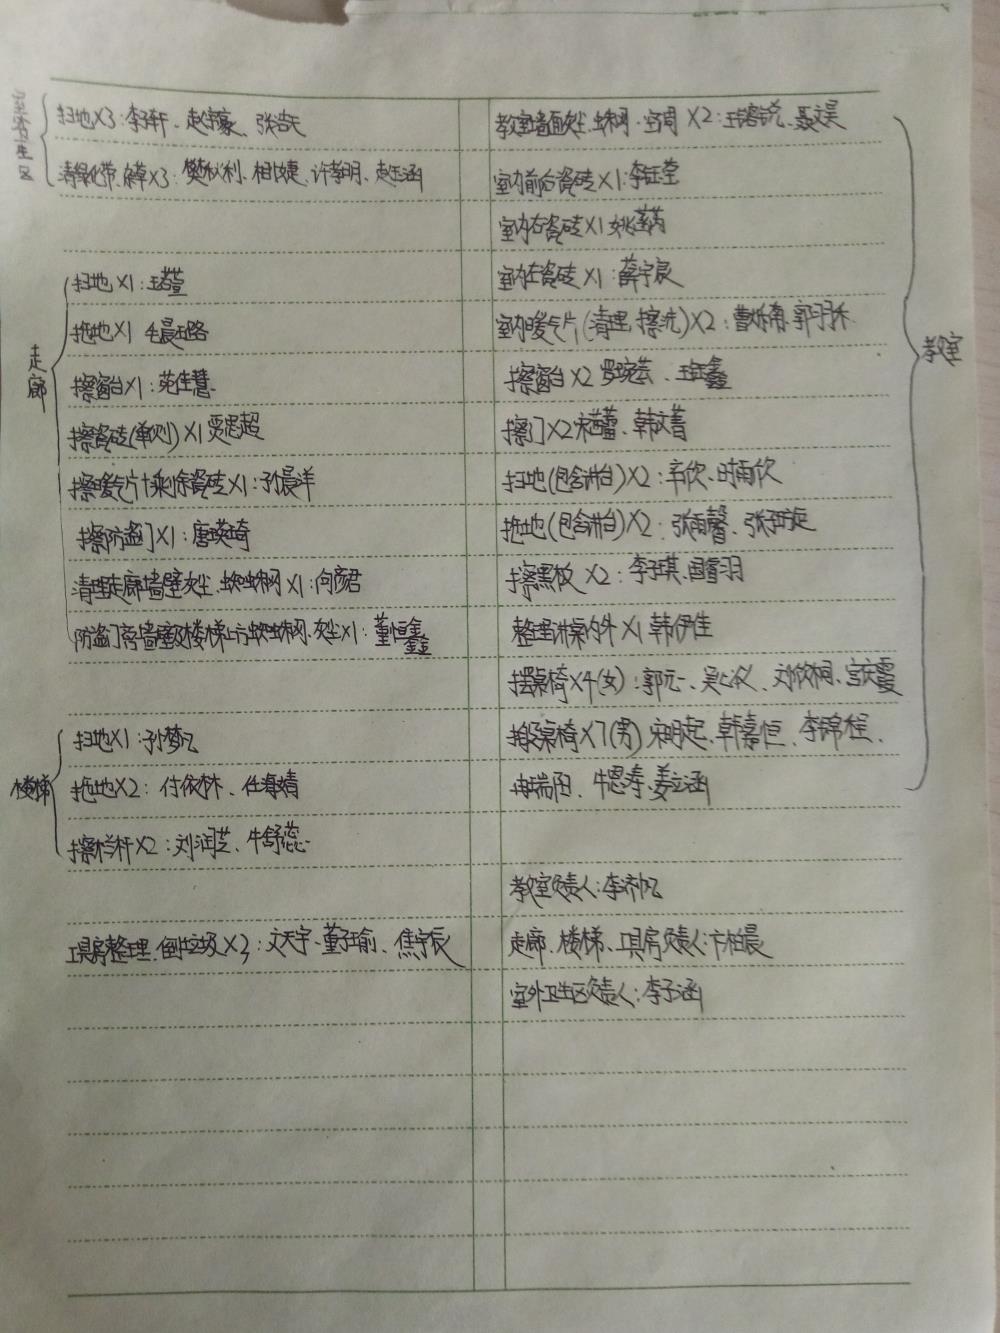 室外卫生区
扫地X3:李子轩、赵宇豪、张浩天
清绿化带、杂草X3:樊秋利、相婕、许孝明、赵玉涵
走廊
扫地X1:王若萱
拖地X1 牛晨璐
擦窗台X1:苑佳慧
擦瓷砖(单侧)X1 贾思超
擦暖气片+剩余瓷砖X1:孙晨洋
擦防盗门X1:唐瑛琦
清理走廊墙壁灰尘、蜘蛛网X1:何彦君
防盗门旁墙壁及楼梯上方蜘蛛网、灰尘X1:董恒鑫
楼梯
扫地X1:孙梦凡
拖地X2:付依林、任海婧
擦栏杆X2:刘润芝、牛舒蕊
工具房整理、倒垃圾X3:文天宇、董子瑜、焦宇辰
教室
教室墙面灰尘、蛛网、空调X2:王锴锐、聂文昊
室内前后瓷砖X1:李钰莹
室内右瓷砖X1 姚莲芮
室内左瓷砖X1:薛宇良
室内暖气片(清理、擦洗)X2:曹烁南、郭羽乔
擦窗台X2 罗琬芸、王钰鑫
擦门X2 宋茜蕾、韩文菁
扫地(包含讲台)X2:辛欣、时雨欣
拖地(包含讲台)X2:张雨馨、张子旋
擦黑板X2:李子琪、田睿羽
整理讲桌内外X1 韩伊佳
摆桌椅X4(女):郭元一、吴心议、刘欣桐、宫庆霞
搬桌椅X7(男) 宋明起、韩嘉恒、李锦程、
冉瑞阳、牛思寿、姜立涵
教室负责人:李济帆
走廊、楼梯、工具房负责人:卞柏晨
室外卫生区负责人:李子涵